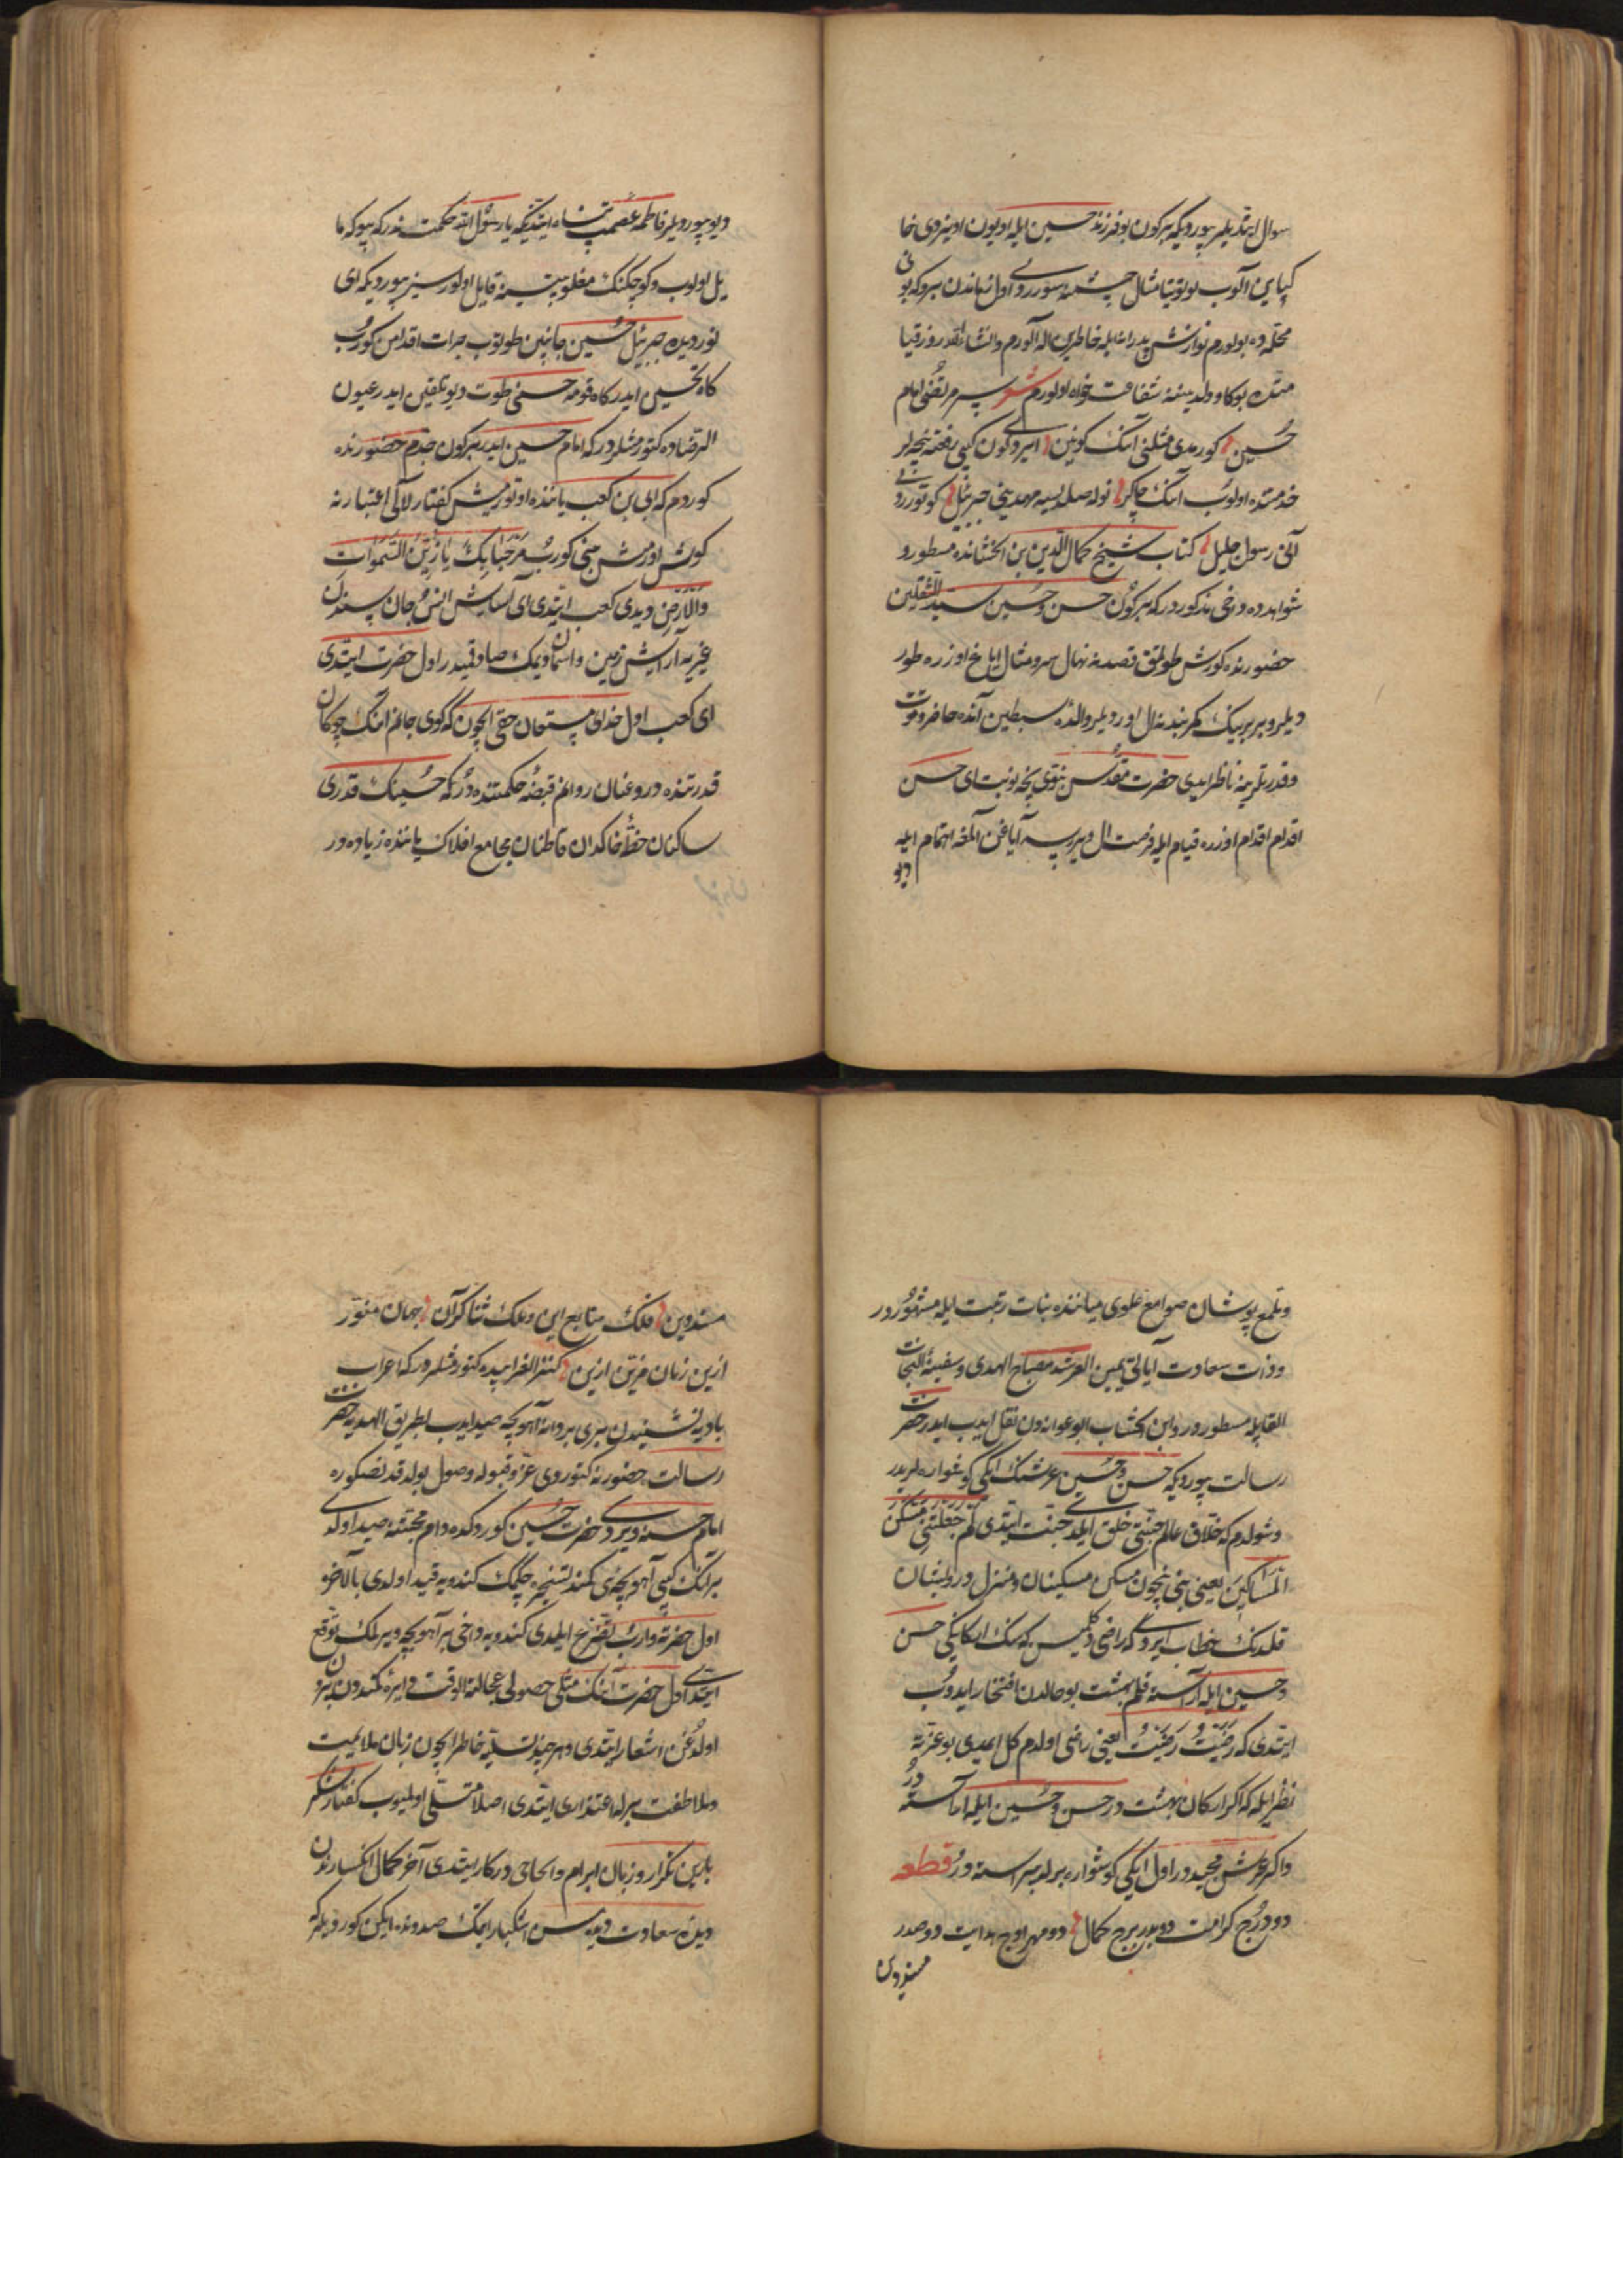 سوال ایتدیلر بیوردیکه بر کون بو فرزند حسین ایله اویون اوینردی خا
کپاین آلوب توتیا مثال چشمنه سورردی اول زماندن برو که بونی
محله ده بولورم نوازش پدرانه ایله خاطرین اله آلورم وانشاءالله روز قیا
متده بوکا و ولدینه شفاعت خواه اولورم شعر پسر مرتضی امام
حسین کورمدی مثلنی آنک کونین
خدمتده اولوب آنک چاکر نوله صلسه مهدینی جبرئیل کوتوردی
آنی رسول جلیل کتاب شیخ کمال الدین بن الخشابده مسطور و
شواهدده دخی مذکوردر که بر کون حسن و حسین سید الثقلین
حضورنده کورش طوتمق قصدنه نهال سرو مثال ایاغ اوزره طور
دیلر و بربرینک کمربندنه ال اوردیلر والدۀ سبطین آنده حاضر و قوت
و قدرتلرینه ناظر ایدی حضرت مقدس نبوی یخه بونبت ای حسن
اقدام اقدام اوزره قیام ایله فرصت ال ویررسه آیاغن آلمغه اهتمام ایله
دیو
دیو بیوردیلر فاطمه عصمت پناه ایتدیکه یا رسول الله حکمت ندر که بیوکه ما
یل اولوب و کوچکنک مغلوبیتنه قایل اولورسیز بیوردیکه ای
نور دیده جبرئیل حسین جانبین طوتوب جرات اقدامن کورب
کاه تحسین ایدر کاه قومه حسنی طوت دیو تلقین ایدر عیون
الرضاده کتورمشلردر که امام حسین ایدر بر کون جدم حضورنده
کوردم که ابی بن کعب یاننده اوتورمش کفتار لآلی اعتبارنه
کوش اورمش منی کورب مرحبا بک یا زین السموات
والارض دیدی کعب ایتدی ای آسایش انس و جان سندن
غیریه آرایش زمین و آسمان دیمک صادقیدر اول حضرت ایتدی
ای کعب اول خدای مستعان حقی ایچون که کوی جانم انک چوکان
قدرتنده در و عنان روانم قبضۀ حکمتنده در که حسینک قدری
ساکنان خطۀ خاکدان قاطنان مجامع افلاک یاننده زیاده در
و ملمع پوشان صوامع علوی میاننده بنات رتبت ایله مشهوردر
و ذات سعادت آیاتی یمین العرشده مصباح الهدی و سفینة النجات
القابله مسطوردر و ابن الخشاب ابو عوانه دن نقل ایدب ایدر حضرت
رسالت بیوردیکه حسن و حسین عرشنک ایکی کوشواره لریدر
و شولدم که خلاق عالم جنتی خلق ایلدی جنت ایتدی لم جعلتنی مسکن
المساکین یعنی بنی نیچون مسکن مسکینان و منزل درویشان
قلدنک خطاب ایردی که راضی دکلمیسن که سنک ارکانکی حسن
و حسین ایله آراسته قلم بهشت بو حالدن افتخار ایدوب
ایتدی که رضیت رضیت یعنی راضی اولدم کل ایمدی بو عزته
نظر ایله که اکر ارکان بهشت در حسن و حسین ایله آراسته در
و اکر عرش مجیددر اول ایکی کوشواره برله پیراسته در قطعه
دو درج کرامت دو بدر برج کمال دو مهر اوج هدایت دو صدر
مسند دین
مسند دین فلک متابع این و ملک ثناکر آن جهان منور
ازین زمان مزین ازین کنز الغرایبده کتورمشلردر که اعراب
بادیه نشیندن بری بر دانه آهو بچه صید ایدب بطریق الهدیه حضرت
رسالت حضورنه کتوردی عز قبوله وصول بولدقدنصکره
امام حسنه ویردی حضرت حسین کوردکده دام محبتنه صید اولدی
برانک کبی آهو بچه ی کمند تسخیره چکمک کندویه قید اولدی بالآخره
اول حضرته وارب تضرع ایلدی کندویه دخی بر آهو بچه ویرلمک توقع
ایتدی اول حضرت آنک مثلی حصولی عجالة الوقت دایرۀ ممکندن بیرون
اولدوغن اشعار ایتدی و هر چند تسلیۀ خاطر ایچون زبان ملایمت
و ملاطفت برله اعتذار ایتدی اصلا متسلی اولمیوب کفتار شکر
بارین تکرار و زبان ابرام و الحاحی درکار ایتدی آخر کمال انکساردن
دیدۀ سعادت دیده سن اشکبار ایمک صددنده ایکن کوردیلر که